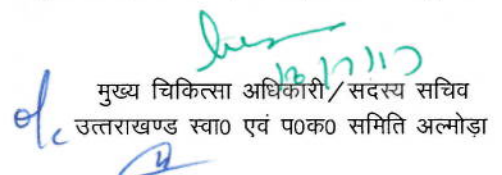 मुख्य चिकित्सा अधिकारी/सदस्य सचिव
o/c उत्तराखण्ड स्वा0 एवं प0क0 समिति अल्मोड़ा